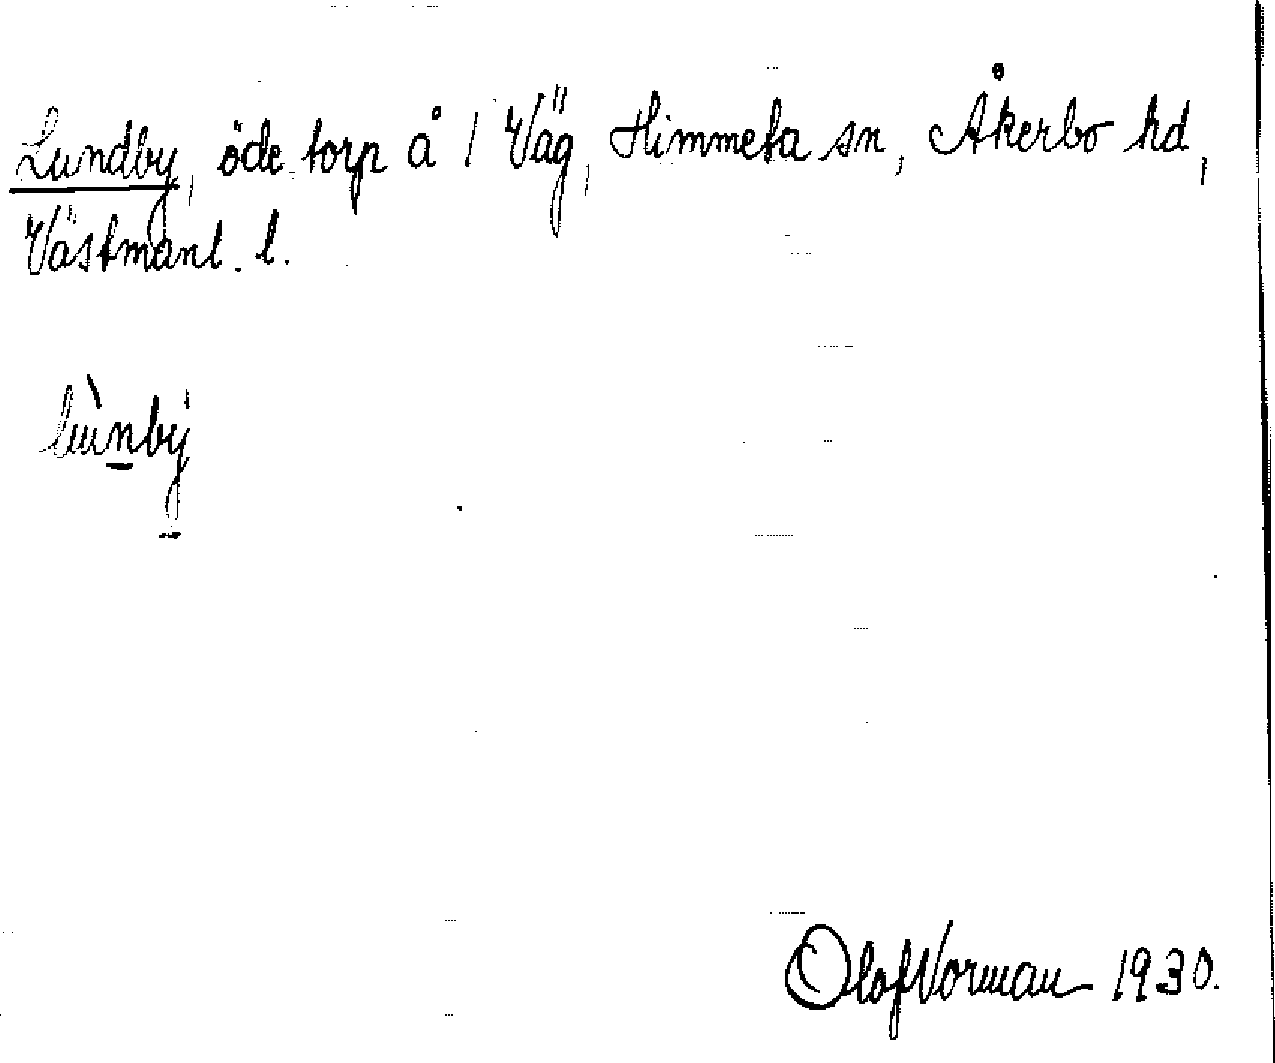 Lundby, öde torp å 1 Väg, Himmeta sn, Åkerbo hd,
Västmanl. l.
lùnby
Olof Norman 1930.